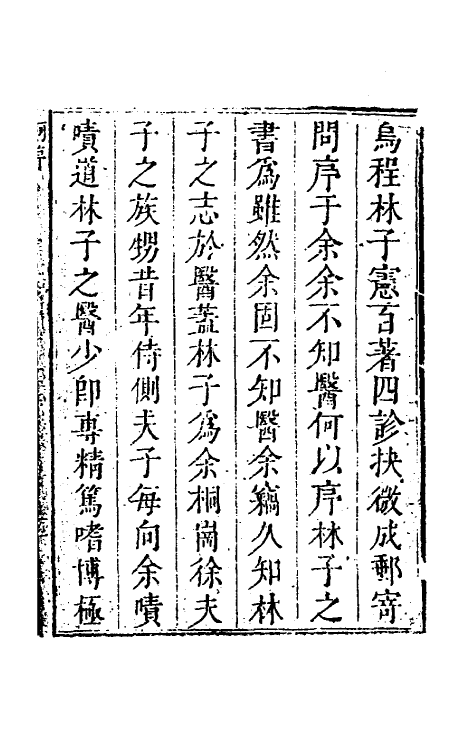 烏程林子憲百著四診抉微成郵寄
問序于余余不知醫何以序林子之
書為雖然余固不知醫余竊久知林
子之志於醫蓋林子為余桐崗徐夫
子之族甥昔年侍側夫子每向余嘖
嘖道林子之醫少即專精篤嗜博極